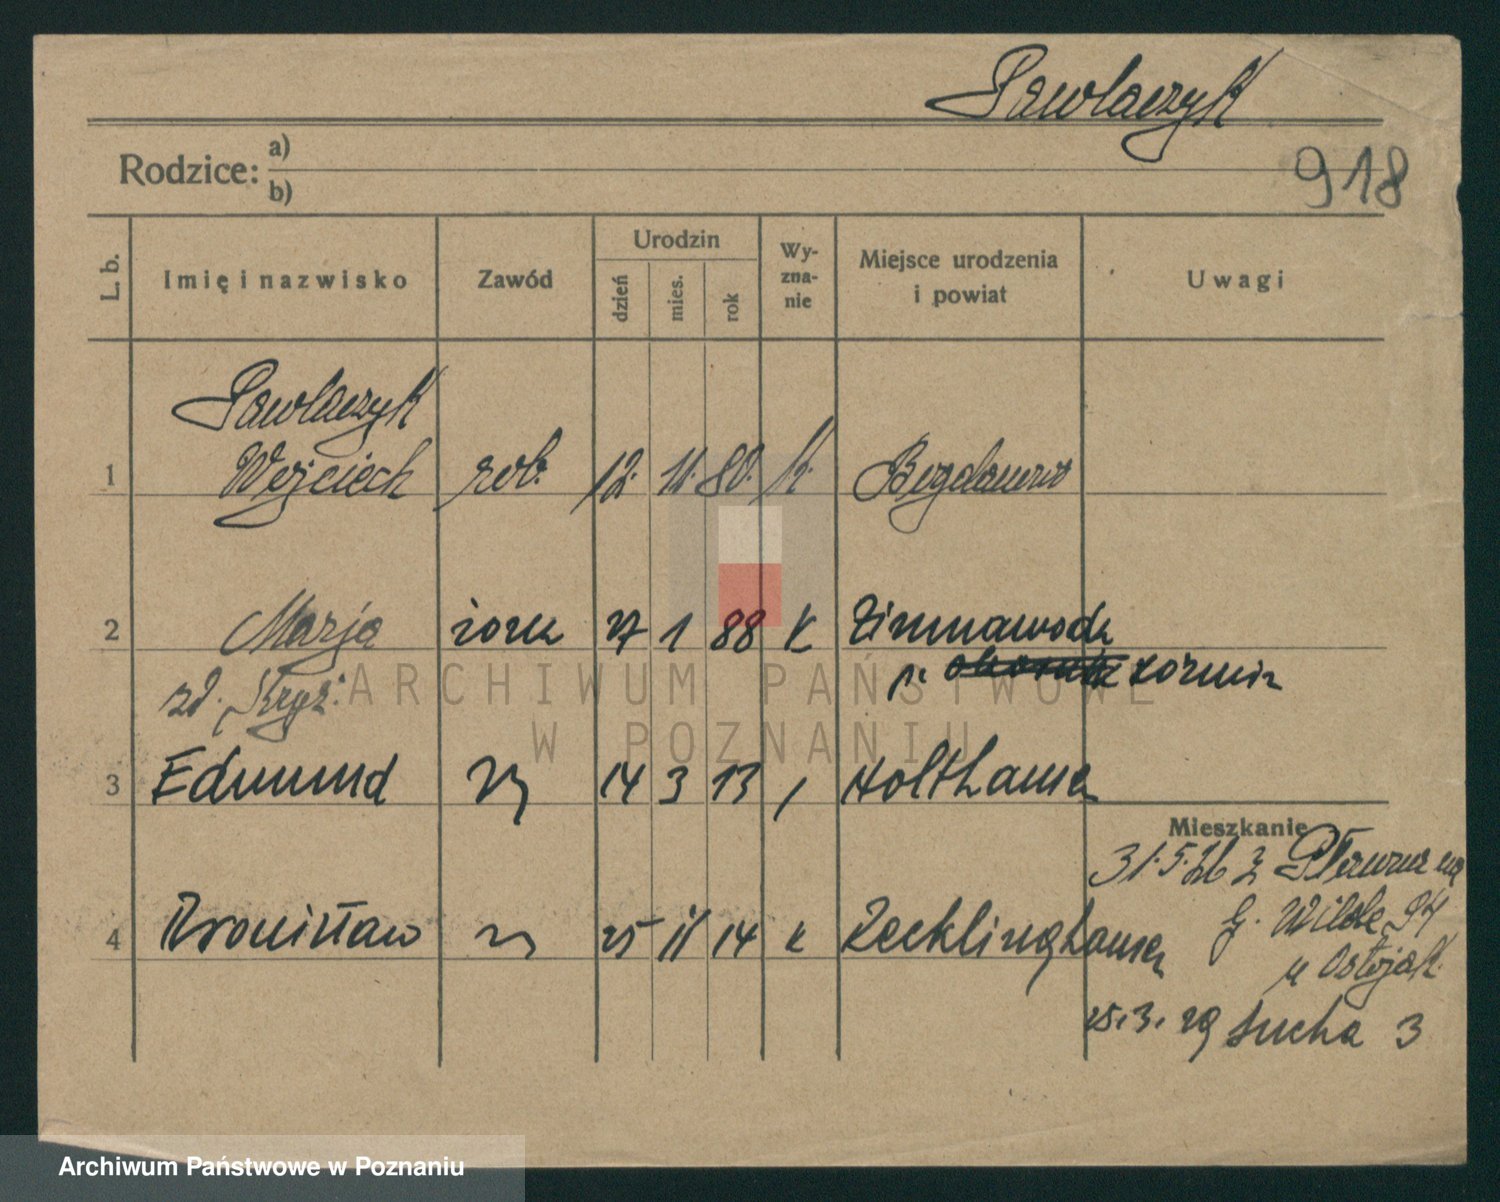 Pawlaczyk
Rodzice: a)
b)
918
L. b.
Imię i nazwisko
Zawód
Urodzin
dzień
mies.
rok
Wy-
zna-
nie
Miejsce urodzenia
i powiat
Uwagi
Pawlaczyk
1 Wojciech rob. 12. 11. 80. k. Bogdanowo
2 Marja żona 27 1 88 k Zimnawoda
zd. Kryś. p. Koźmin
3 Edmund 14 3 13 Holthausen
Mieszkanie
31.5.26 z
4 Bronisław 25 11 14 k Recklinghausen
G. Wilda 94
u
25.3.29 Sucha 3
ARCHIWUM PAŃSTWOWE
W POZNANIU
Archiwum Państwowe w Poznaniu